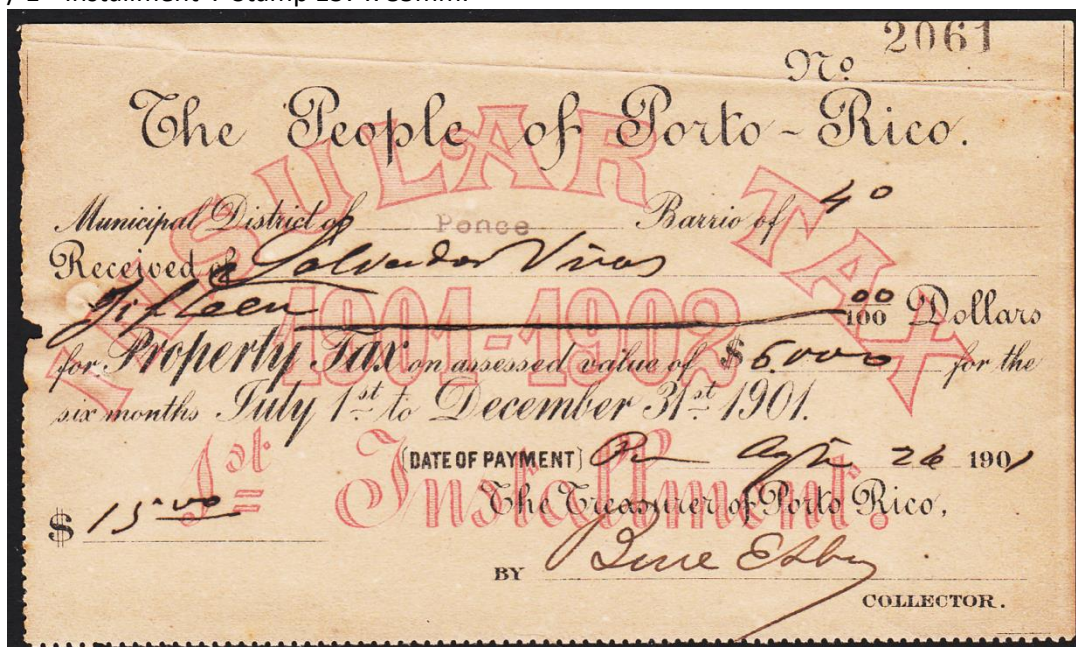 2061
No
The People of Porto-Rico.
INSULAR TAX
Municipal District of Ponce Barrio of 4o
Received of Salvador Vivas
Fifteen 00/100 Dollars
1901-1902
for Property Tax on assessed value of $ 6.000 for the
six months July 1st to December 31st 1901.
1st Installment.
(DATE OF PAYMENT) 26 1901
The Treasurer of Porto Rico,
$ 15.00
BY
COLLECTOR.